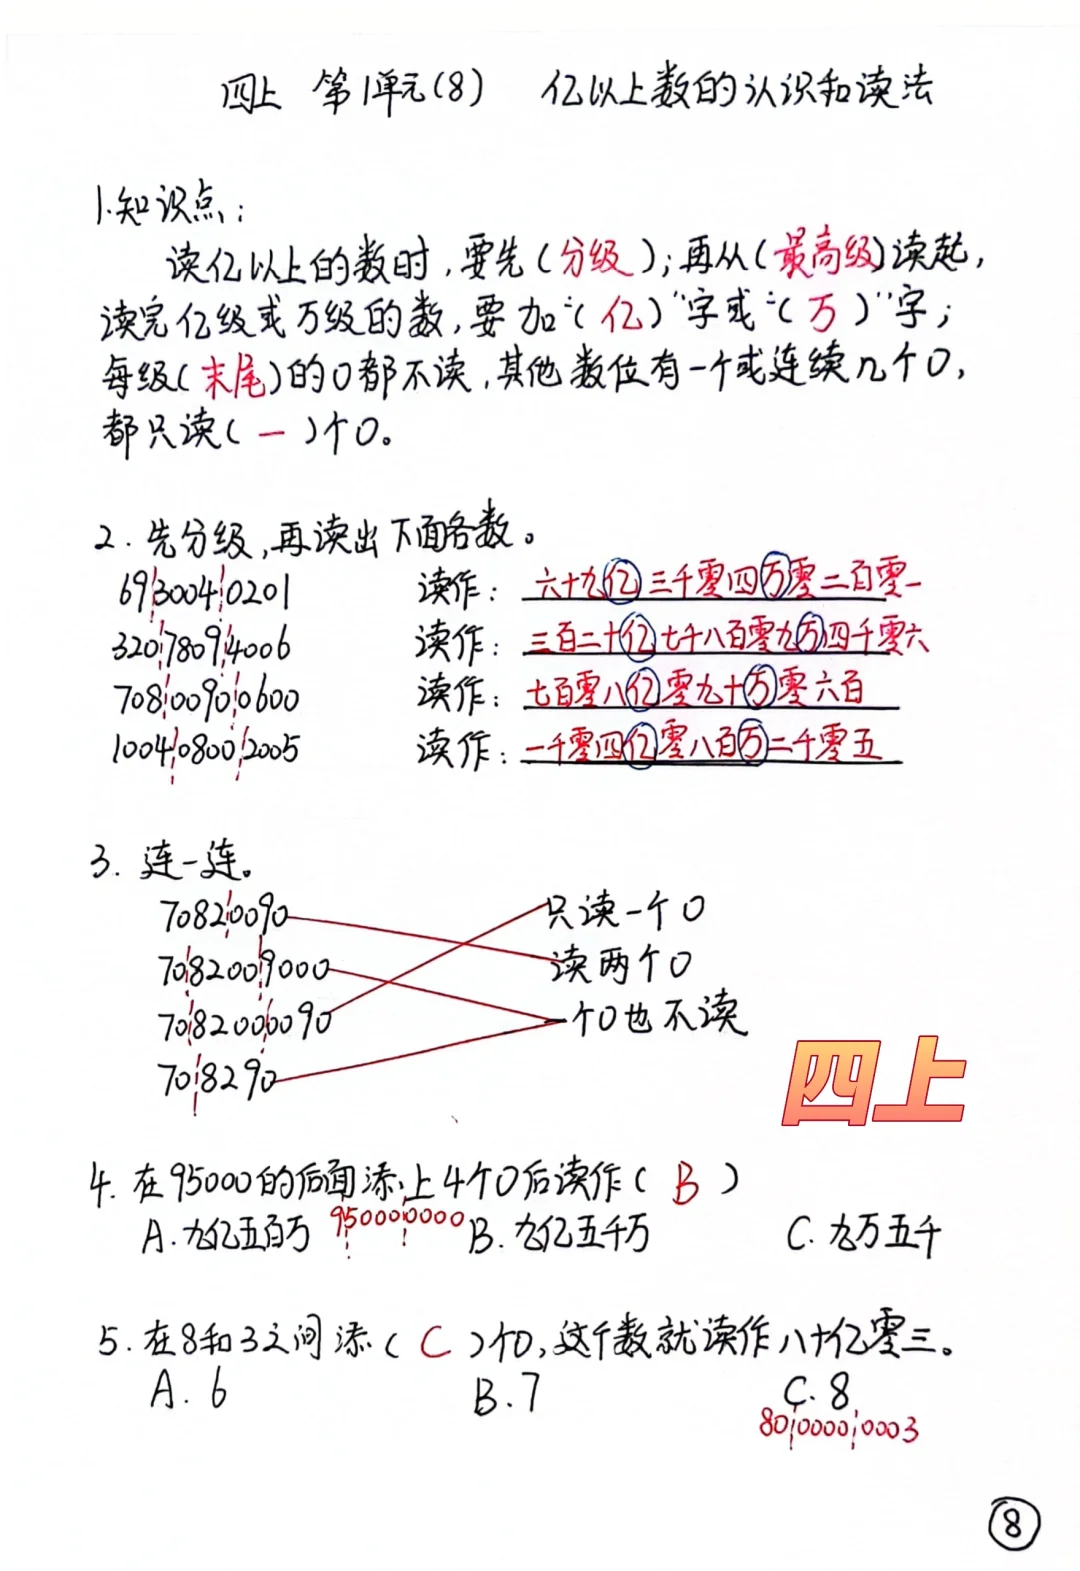 四上 第1单元(8) 亿以上数的认识和读法
1.知识点:
读亿以上的数时,要先(分级);再从(最高级)读起,
读完亿级或万级的数,要加“(亿)”字或“(万)”字;
每级(末尾)的0都不读,其他数位有一个或连续几个0,
都只读(一)个0。
2.先分级,再读出下面各数。
6930040201 读作:六十九亿三千零四万零二百零一
32078094006 读作:三百二十亿七千八百零九万四千零六
70800900600 读作:七百零八亿零九十万零六百
100408002005 读作:一千零四亿零八百万二千零五
3.连一连。
70820090 只读一个0
7082009000 读两个0
7082000090 一个0也不读
708290
4.在95000的后面添上4个0后读作(B)
A.九亿五百万 950000000 B.九亿五千万 C.九万五千
5.在8和3之间添(C)个0,这个数就读作八十亿零三。
A.6 B.7 C.8
8000000003
四上
8